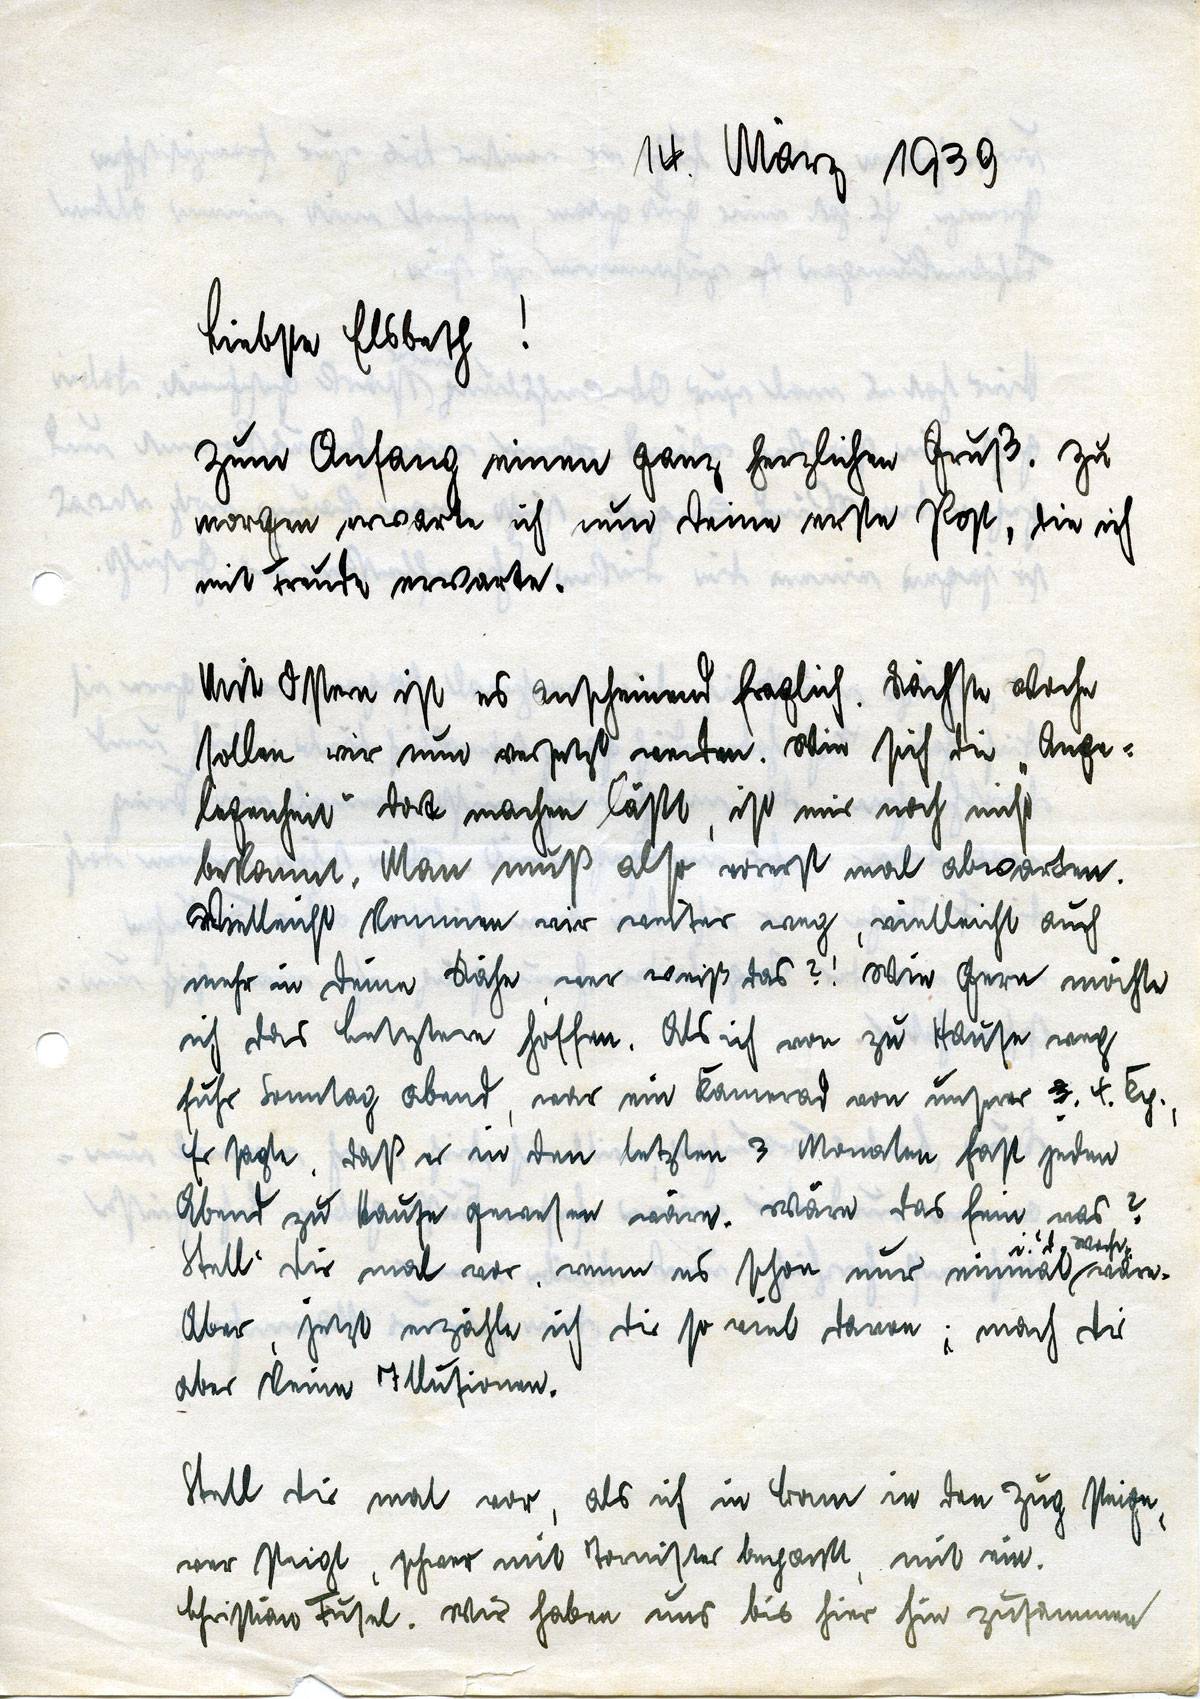 14. März 1939
Liebste Elsbeth !
Zum Anfang einen ganz herzlichen Gruß. Zu
morgen erwarte ich nun deine erste Post, die ich
mit Freude erwarte.
Mit Ostern ist es anscheinend fraglich. Nächste Woche
sollen wir nun versetzt werden. Wie sich die „Ange=
legenheit" dort machen läßt, ist mir noch nicht
bekannt. Man muß also vorerst mal abwarten.
Vielleicht kommen wir weiter weg, vielleicht auch
mehr in deine Nähe, wer weiß das?! Wie gern möchte
ich das letztere hoffen. Als ich von zu Hause weg
fuhr Sonntag abend, war ein Kamerad von unserer 4. Kp.,
Er sagte, daß er in den letzten 3 Monaten fast jeden
Abend zu Hause gewesen wäre. Wäre das fein was?
Stell' dir mal vor, wenn es schon nur einmal i. d. Woche wäre.
Aber, jetzt erzähle ich dir so viel davon; mach dir
aber keine Illusionen.
Stell dir mal vor, als ich in Bonn in den Zug steige,
wer steigt, schwer mit Tornister bepackt, mit ein.
Christian Fusel. Wir haben uns bis hier hin zusammen